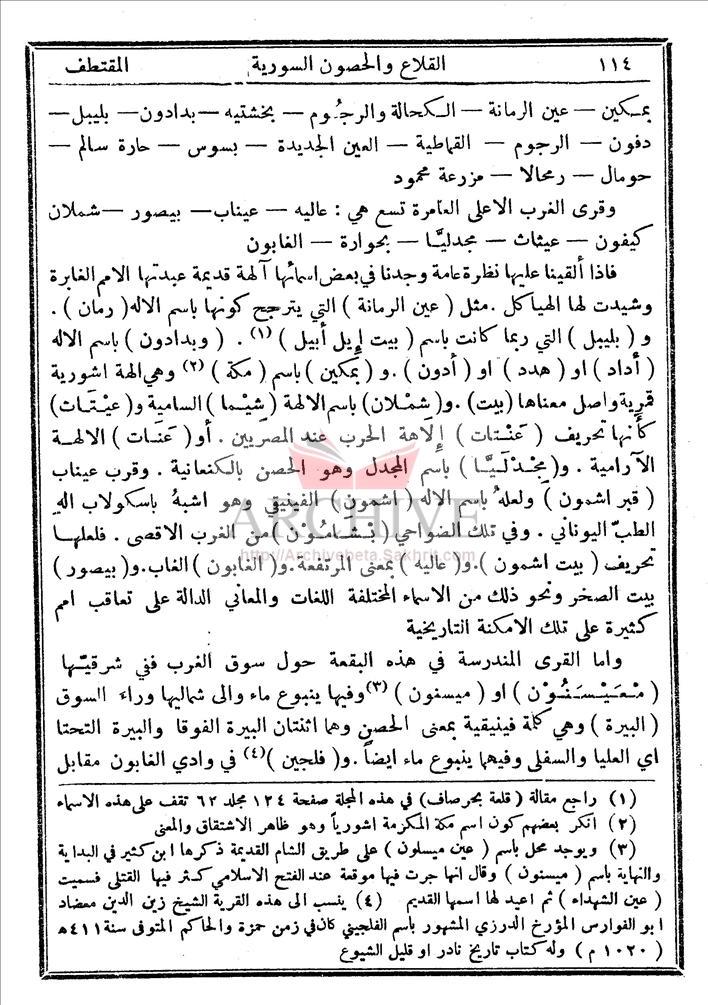 ١١٤ القلاع والحصون السورية المقتطف
بمكين — عين الرمانة — الكحالة والرجوم — بخشتيه — بدادون — بليبل —
دفون — الرجوم — القماطية — العين الجديدة — بسوس — حارة سالم —
حومال — رمحالا — مزرعة محمود
وقرى الغرب الاعلى العامرة تسع هي : عاليه — عيناب — بيصور — شملان
كيفون — عيثات — مجدليا — بحوارة — الغابون
فاذا ألقينا عليها نظرة عامة وجدنا في بعض اسمائها آلهة قديمة عبدتها الامم الغابرة
وشيدت لها الهياكل . مثل ( عين الرمانة ) التي يترجح كونها باسم الاله ( رمان ) .
و ( بليبل ) التي ربما كانت باسم ( بيت إيل أبيل ) (١) . ( وبدادون ) باسم الاله
( أداد ) او ( هدد ) او ( أدون ) . و ( بمكين ) باسم ( مكة ) (٢) وهي الهة اشورية
قمرية واصل معناها ( بيت ) . و ( شملان ) باسم الالهة ( شيما ) السامية و ( عيتات )
كأنها تحريف ( عنتات ) إلاهة الحرب عند المصريين . أو ( عنات ) الالهة
الآرامية . و ( مجدليا ) باسم المجدل وهو الحصن بالكنعانية . وقرب عيناب
( قبر اشمون ) ولعله باسم الاله ( اشمون ) الفينيقي وهو اشبه باسكولاب اله
الطب اليوناني . وفي تلك الضواحي ( بشامون ) من الغرب الاقصى . فلعلها
تحريف ( بيت اشمون ) . و ( عاليه ) بمعنى المرتفعة . و ( الغابون ) الغاب . و ( بيصور )
بيت الصخر ونحو ذلك من الاسماء المختلفة اللغات والمعاني الدالة على تعاقب امم
كثيرة على تلك الامكنة التاريخية
واما القرى المندرسة في هذه البقعة حول سوق الغرب ففي شرقيها
( معيسنون ) او ( ميسنون ) (٣) وفيها ينبوع ماء والى شماليها وراء السوق
( البيرة ) وهي كلمة فينيقية بمعنى الحصن وهما اثنتان البيرة الفوقا والبيرة التحتا
اي العليا والسفلى وفيهما ينبوع ماء ايضاً . و ( فلجين ) (٤) في وادي الغابون مقابل
(١) راجع مقالة ( قلعة بحرصاف ) في هذه المجلة صفحة ١٢٤ مجلد ٦٢ تقف على هذه الاسماء
(٢) انكر بعضهم كون اسم مكة المكرمة اشورياً وهو ظاهر الاشتقاق والمعنى
(٣) ويوجد محل باسم ( عين ميسلون ) على طريق الشام القديمة ذكرها ابن كثير في البداية
والنهاية باسم ( ميسنون ) وقال انها جرت فيها موقعة عند الفتح الاسلامي كثر فيها القتلى فسميت
( عين الشهداء ) ثم اعيد لها اسمها القديم (٤) ينسب الى هذه القرية الشيخ زين الدين معضاد
ابو الفوارس المؤرخ الدرزي المشهور باسم الفلجيني كان في زمن حمزة والحاكم المتوفى سنة ٤١١ ه
( ١٠٢٠ م ) وله كتاب تاريخ نادر او قليل الشيوع
ARCHIVE
http://Archivebeta.Sakhrit.com